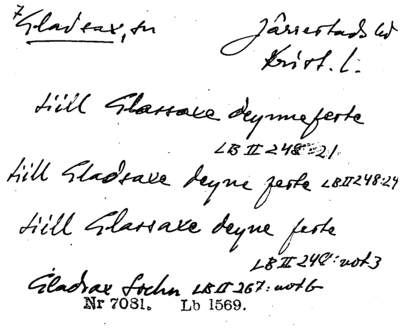 7 Gladsax, sn Järrestads hd
Krist. l.
tiill Glassaxe deynneferte
LB II 248:21
tiill Gladsaxe deyne ferte LB II 248:24
tiill Glassaxe deyne ferte
LB II 249: not 3
Gladsax Sochn LB II 267: not 6
Nr 7081. Lb 1569.